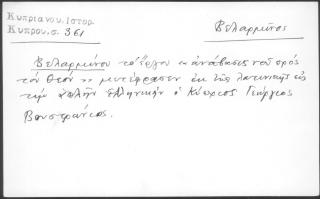 Κυπριανου. Ιστορ.
Κυπρου. σ. 361
Βελαρμῖνος
Βελαρμίνου τὸ ἔργον « ἀνάβασις τοῦ πρὸς
τὸν Θεόν » μετέφρασεν ἐκ τῆς λατινικῆς εἰς
τὴν ἑλληνικὴν ὁ Κύπριος Γεώργιος
Βουστράνιος.